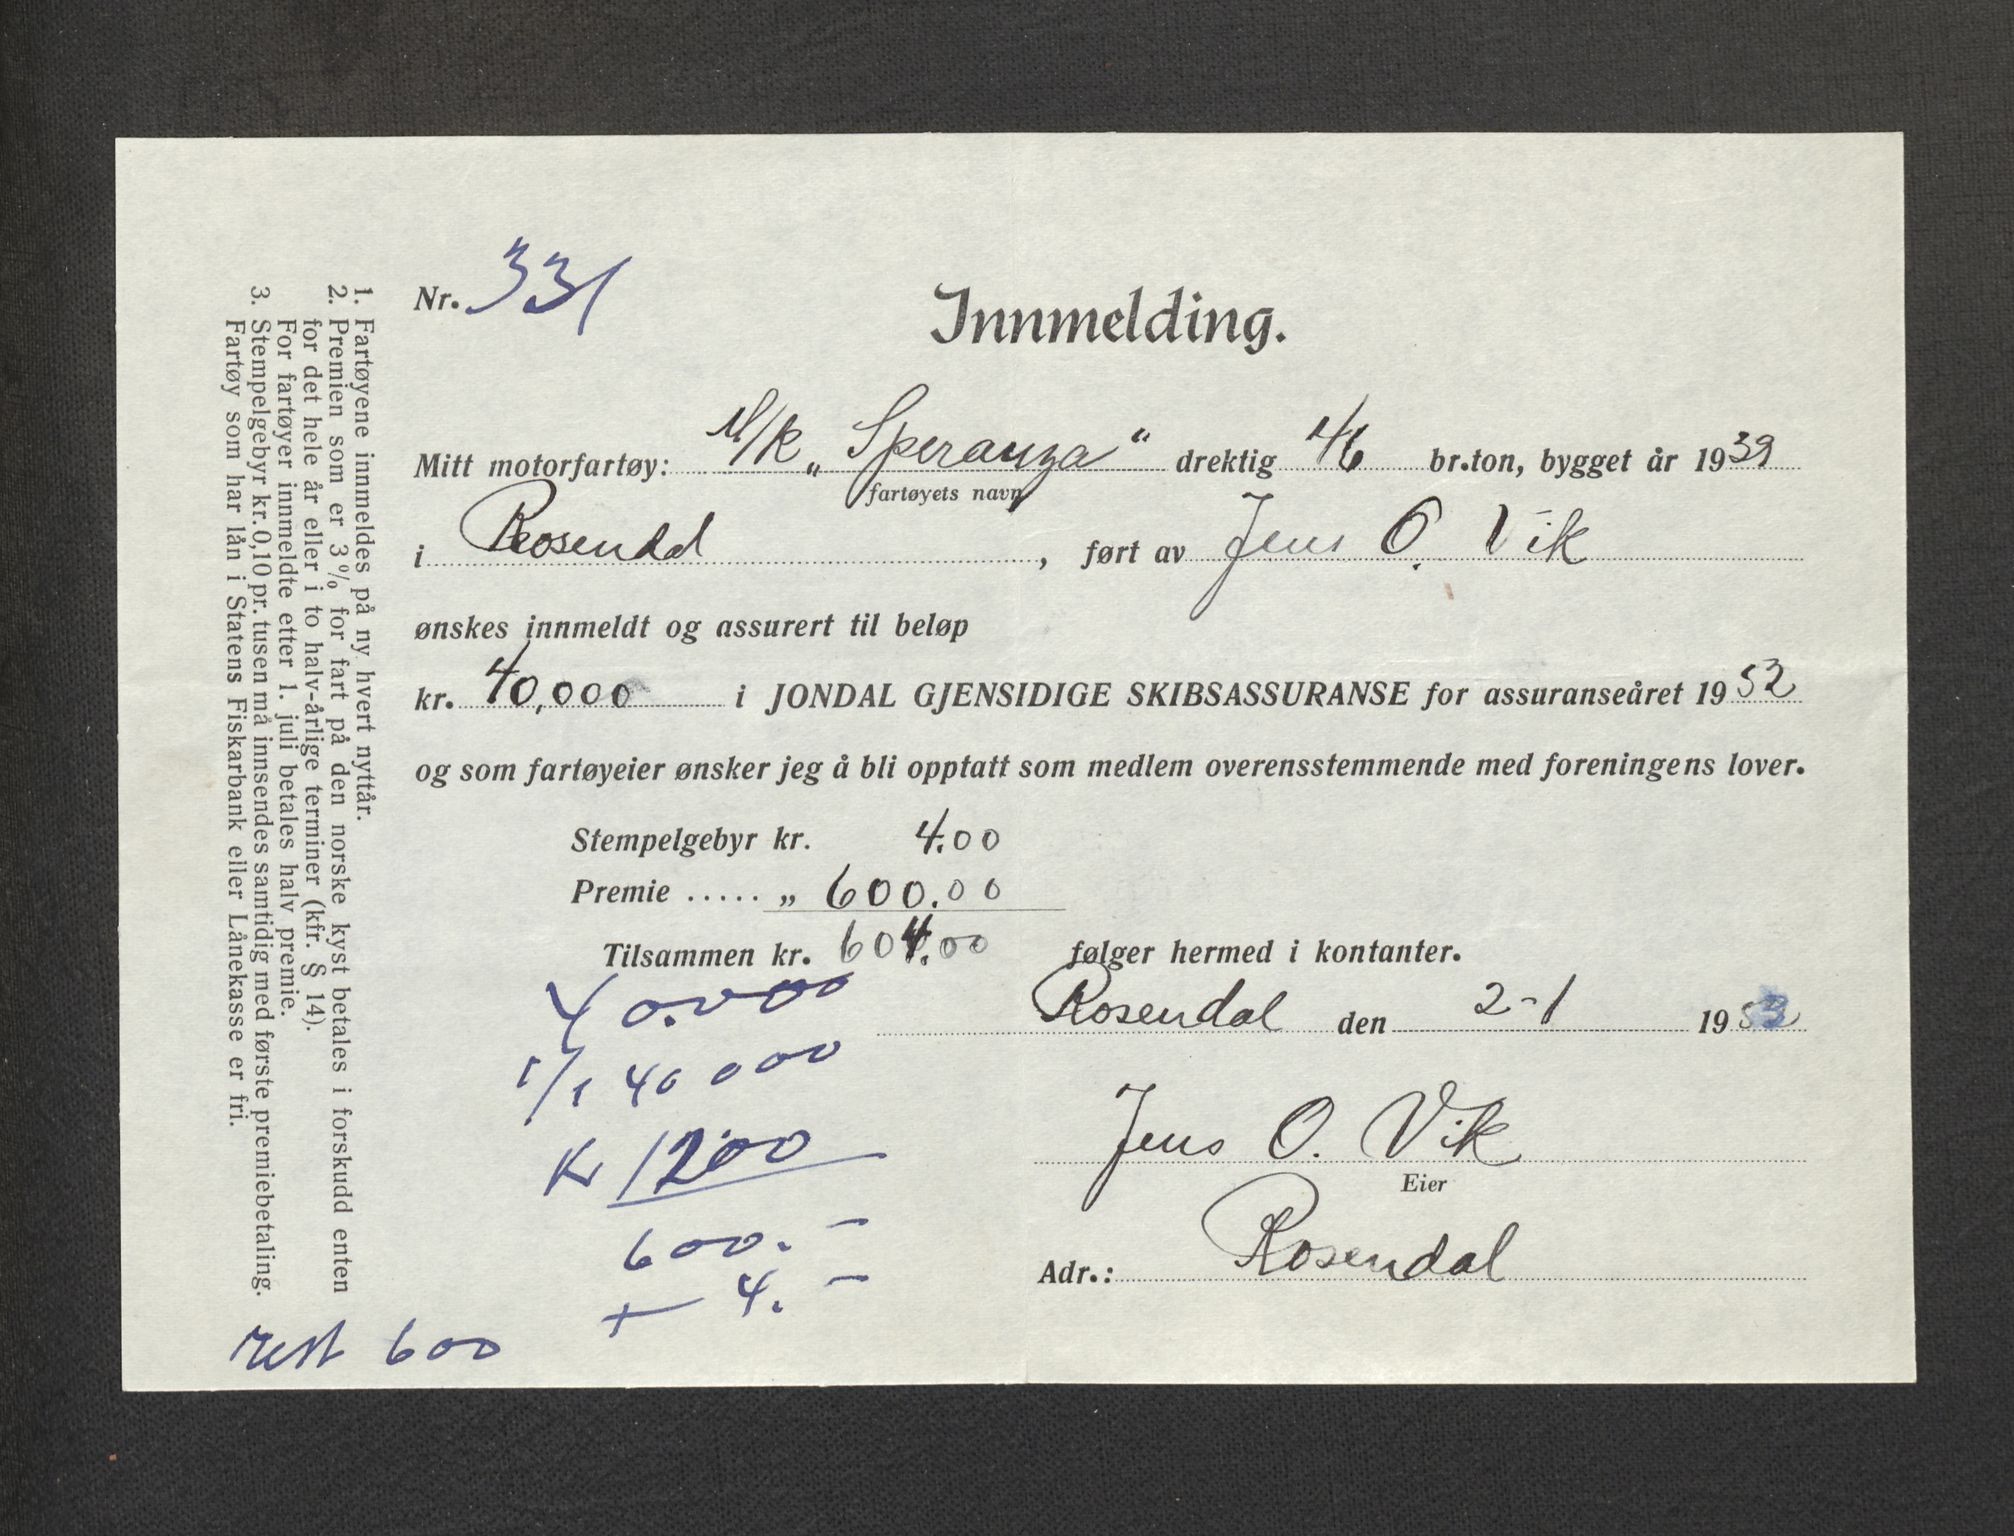 Nr. 331
Innmelding.
Mitt motorfartøy: M/K „Speranza“ drektig 46 br.ton, bygget år 1939
fartøyets navn
i Rosendal, ført av Jens O. Vik
ønskes innmeldt og assurert til beløp
kr. 40,000 i JONDAL GJENSIDIGE SKIBSASSURANSE for assuranseåret 1952
og som fartøyeier ønsker jeg å bli opptatt som medlem overensstemmende med foreningens lover.
Stempelgebyr kr. 4.00
Premie ..... „ 600.00
Tilsammen kr. 604.00 følger hermed i kontanter.
Rosendal den 2-1 1953
Jens O. Vik
Eier
Adr.: Rosendal
40.000
1/1 40000
Kr 1200
600.-
+ 4.-
rest 600
1. Fartøyene innmeldes på ny hvert nyttår.
2. Premien som er 3% for fart på den norske kyst betales i forskudd enten
for det hele år eller i to halv-årlige terminer (kfr. § 14).
For fartøyer innmeldte etter 1. juli betales halv premie.
3. Stempelgebyr kr. 0,10 pr. tusen må innsendes samtidig med første premiebetaling.
Fartøy som har lån i Statens Fiskarbank eller Lånekasse er fri.